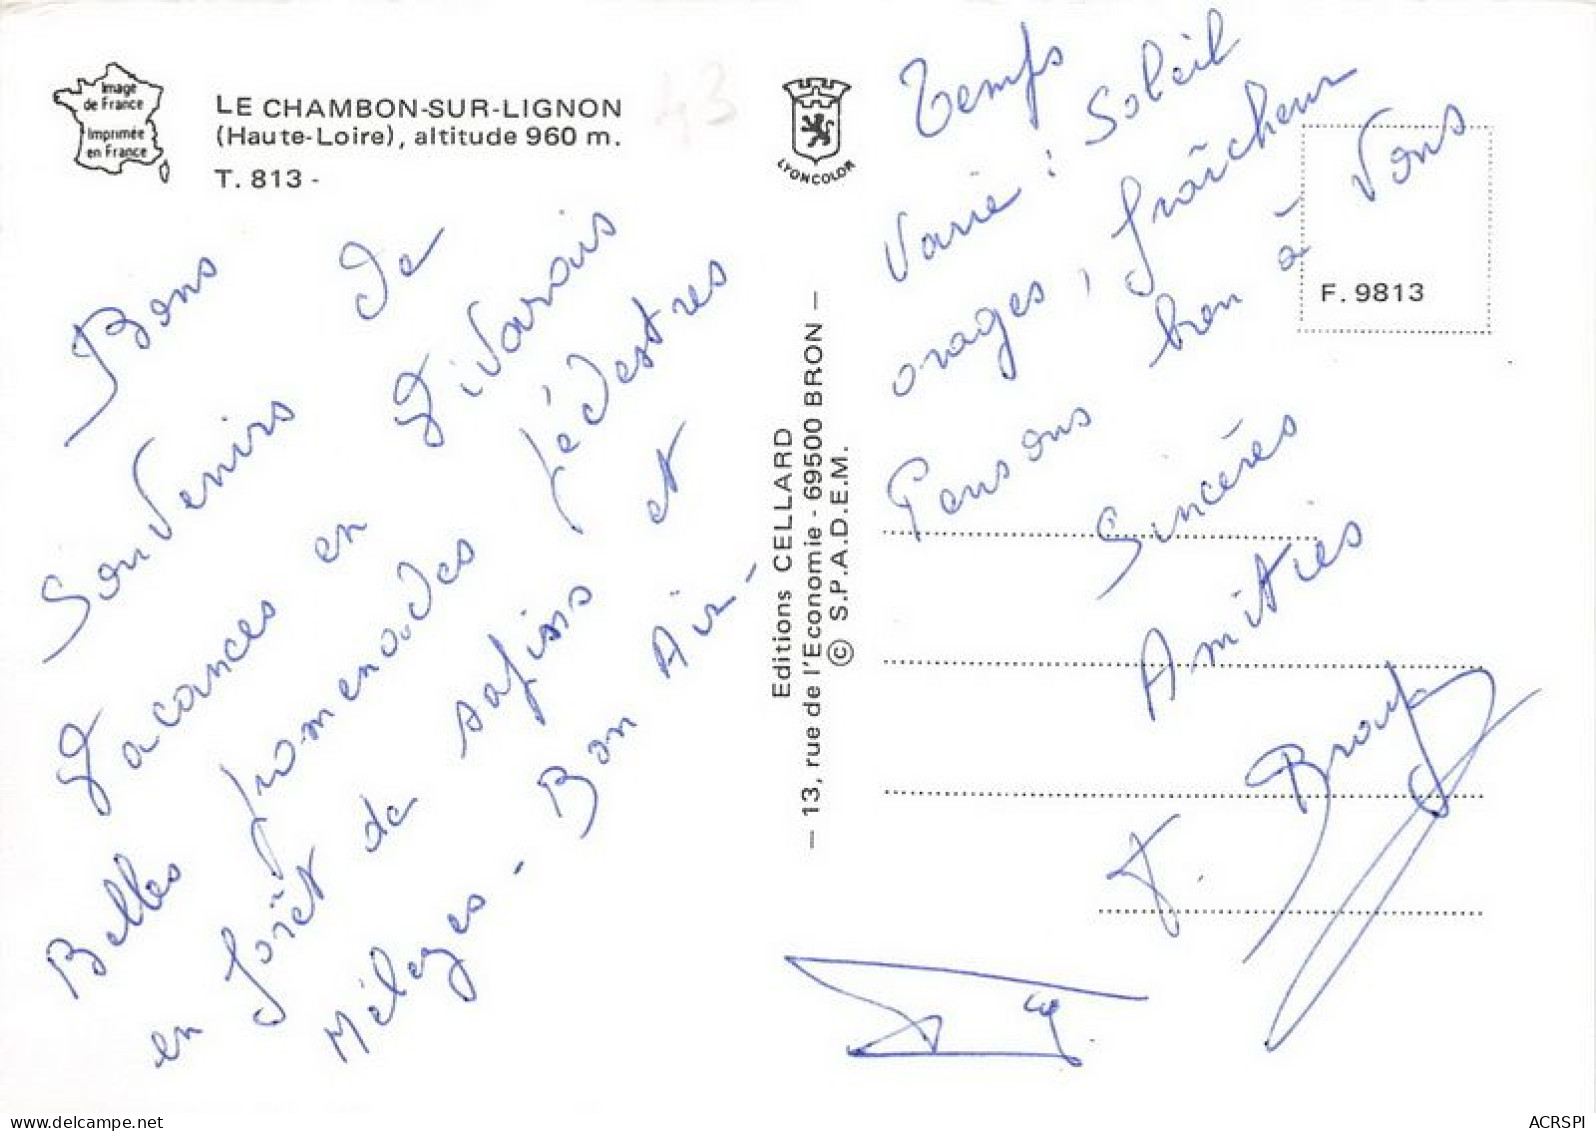 Image
de France
Imprimée
en France
LE CHAMBON-SUR-LIGNON
(Haute-Loire), altitude 960 m.
T. 813 -
43
LYONCOLOR
Bons
Souvenirs de
Vacances en Vivarais
Belles promenades pédestres
en forêt de sapins et
Mélèzes - Bon Air -
Editions CELLARD
— 13, rue de l'Economie - 69500 BRON —
© S.P.A.D.E.M.
Temps
Varié : Soleil
orages, fraîcheur
Pensons bien à Vous
Sincères
Amitiés
F. 9813
ACRSPI